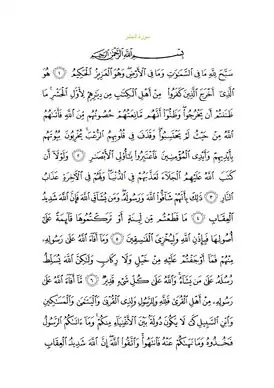 سورة الحشر
بِسْمِ ٱللَّهِ ٱلرَّحْمَٰنِ ٱلرَّحِيمِ
سَبَّحَ لِلَّهِ مَا فِي ٱلسَّمَٰوَٰتِ وَمَا فِي ٱلْأَرْضِۖ وَهُوَ ٱلْعَزِيزُ ٱلْحَكِيمُ ۝١ هُوَ
ٱلَّذِيٓ أَخْرَجَ ٱلَّذِينَ كَفَرُوا۟ مِنْ أَهْلِ ٱلْكِتَٰبِ مِن دِيَٰرِهِمْ لِأَوَّلِ ٱلْحَشْرِۚ مَا
ظَنَنتُمْ أَن يَخْرُجُوا۟ۖ وَظَنُّوٓا۟ أَنَّهُم مَّانِعَتُهُمْ حُصُونُهُم مِّنَ ٱللَّهِ فَأَتَىٰهُمُ
ٱللَّهُ مِنْ حَيْثُ لَمْ يَحْتَسِبُوا۟ۖ وَقَذَفَ فِي قُلُوبِهِمُ ٱلرُّعْبَۚ يُخْرِبُونَ بُيُوتَهُم
بِأَيْدِيهِمْ وَأَيْدِي ٱلْمُؤْمِنِينَ فَٱعْتَبِرُوا۟ يَٰٓأُو۟لِي ٱلْأَبْصَٰرِ ۝٢ وَلَوْلَآ أَن
كَتَبَ ٱللَّهُ عَلَيْهِمُ ٱلْجَلَآءَ لَعَذَّبَهُمْ فِي ٱلدُّنْيَاۖ وَلَهُمْ فِي ٱلْءَاخِرَةِ عَذَابُ
ٱلنَّارِ ۝٣ ذَٰلِكَ بِأَنَّهُمْ شَآقُّوا۟ ٱللَّهَ وَرَسُولَهُۥۖ وَمَن يُشَآقِّ ٱللَّهَ فَإِنَّ ٱللَّهَ شَدِيدُ
ٱلْعِقَابِ ۝٤ مَا قَطَعْتُم مِّن لِّينَةٍ أَوْ تَرَكْتُمُوهَا قَآئِمَةً عَلَىٰٓ
أُصُولِهَا فَبِإِذْنِ ٱللَّهِ وَلِيُخْزِيَ ٱلْفَٰسِقِينَ ۝٥ وَمَآ أَفَآءَ ٱللَّهُ عَلَىٰ رَسُولِهِۦ
مِنْهُمْ فَمَآ أَوْجَفْتُمْ عَلَيْهِ مِنْ خَيْلٍ وَلَا رِكَابٍ وَلَٰكِنَّ ٱللَّهَ يُسَلِّطُ
رُسُلَهُۥ عَلَىٰ مَن يَشَآءُۚ وَٱللَّهُ عَلَىٰ كُلِّ شَيْءٍ قَدِيرٌ ۝٦ مَّآ أَفَآءَ ٱللَّهُ عَلَىٰ
رَسُولِهِۦ مِنْ أَهْلِ ٱلْقُرَىٰ فَلِلَّهِ وَلِلرَّسُولِ وَلِذِي ٱلْقُرْبَىٰ وَٱلْيَتَٰمَىٰ وَٱلْمَسَٰكِينِ
وَٱبْنِ ٱلسَّبِيلِ كَيْ لَا يَكُونَ دُولَةًۢ بَيْنَ ٱلْأَغْنِيَآءِ مِنكُمْۚ وَمَآ ءَاتَىٰكُمُ ٱلرَّسُولُ
فَخُذُوهُ وَمَا نَهَىٰكُمْ عَنْهُ فَٱنتَهُوا۟ۚ وَٱتَّقُوا۟ ٱللَّهَۖ إِنَّ ٱللَّهَ شَدِيدُ ٱلْعِقَابِ